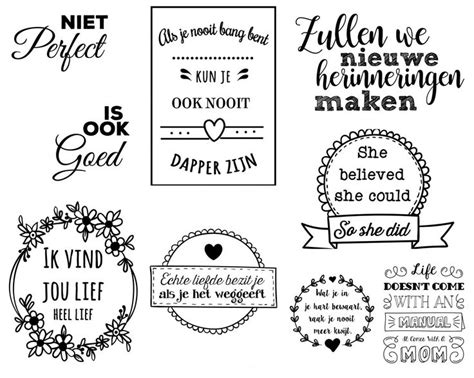 NIET
Perfect
IS
OOK
Goed
Als je nooit bang bent
KUN JE
OOK NOOIT
DAPPER ZIJN
Zullen we
nieuwe
herinneringen
maken
She
believed
she could
So she did
IK VIND
JOU LIEF
HEEL LIEF
Echte liefde bezit je
als je het weggeeft
Wat je in
je hart bewaart,
raak je nooit
meer kwijt.
Life
DOESN'T COME
WITH AN
MANUAL
It Comes With a
MOM